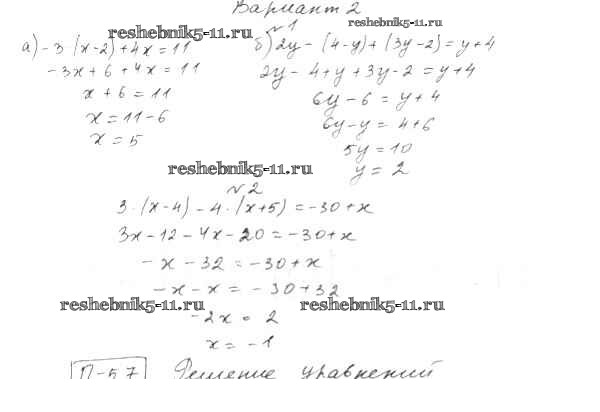 Вариант 2
reshebnik5-11.ru
reshebnik5-11.ru
№1
а) -3·(x-2)+4x=11
-3x+6+4x=11
x+6=11
x=11-6
x=5
б) 2y-(4-y)+(3y-2)=y+4
2y-4+y+3y-2=y+4
6y-6=y+4
6y-y=4+6
5y=10
y=2
reshebnik5-11.ru
№2
3·(x-4)-4·(x+5)=-30+x
3x-12-4x-20=-30+x
-x-32=-30+x
-x-x=-30+32
reshebnik5-11.ru reshebnik5-11.ru
-2x=2
x=-1
П-57 Решение уравнений